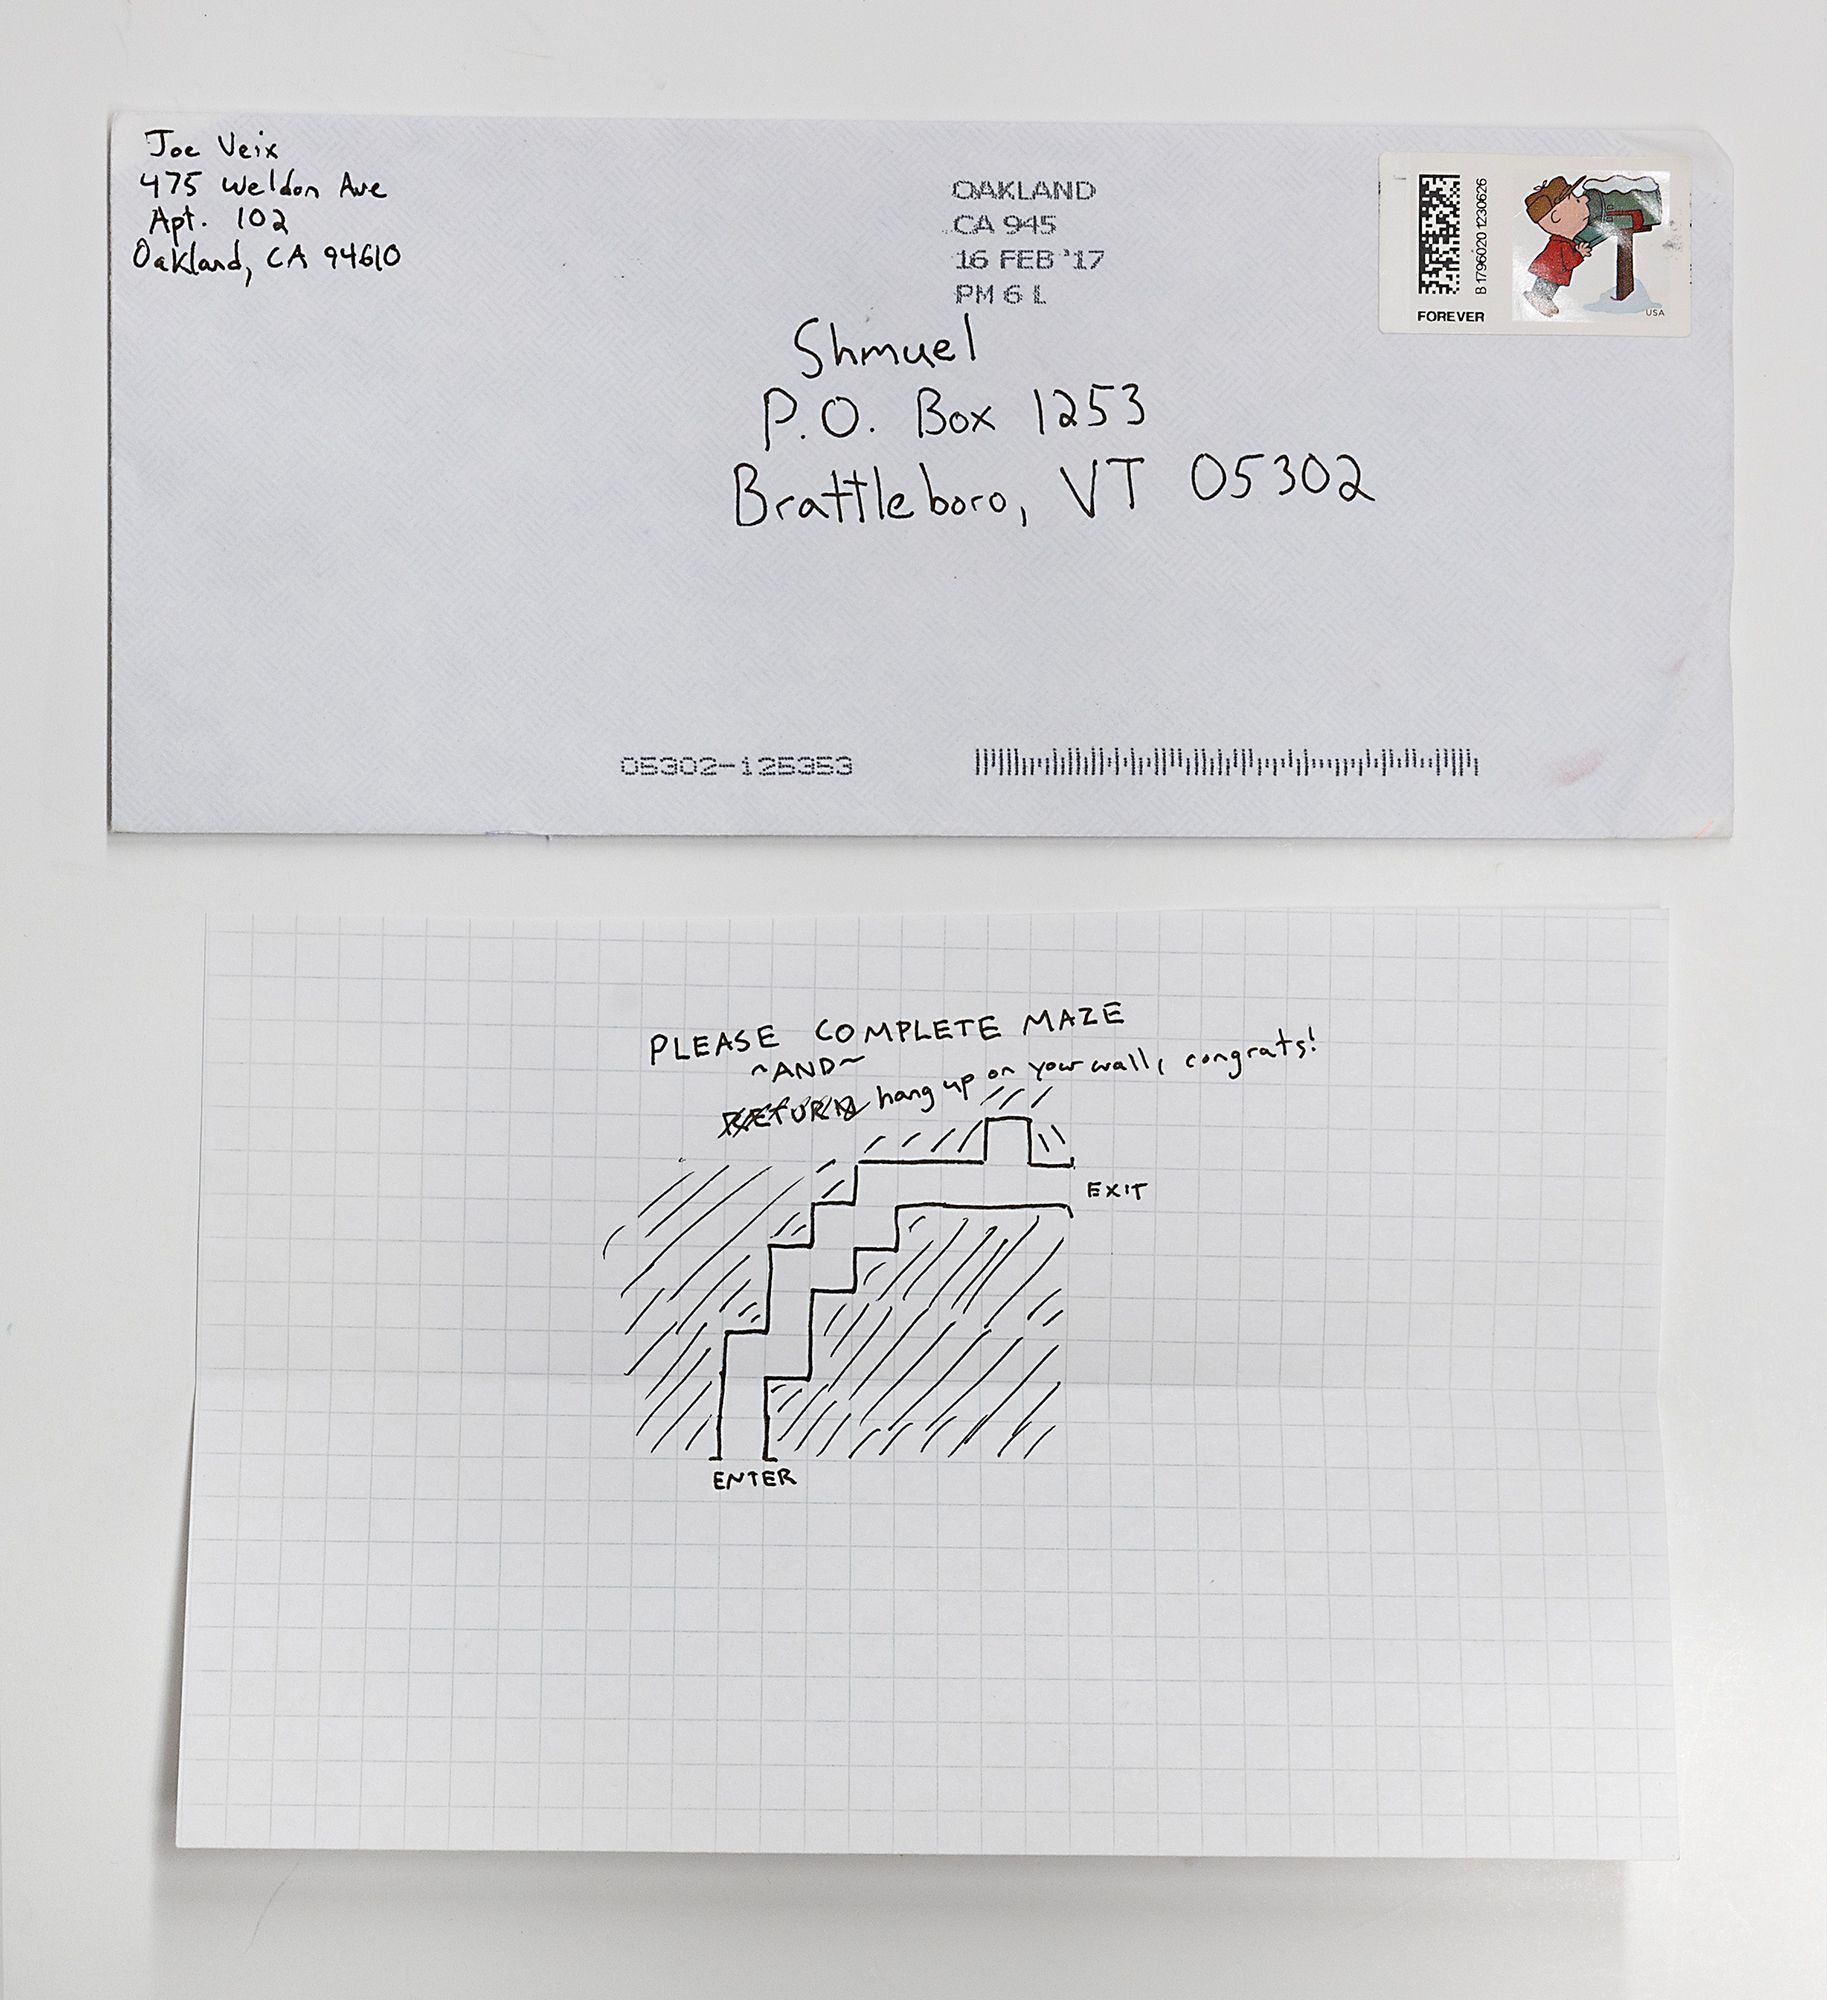 Joe Veix
475 Weldon Ave
Apt. 102
Oakland, CA 94610
OAKLAND
CA 945
16 FEB '17
PM 6 L
B1796020 1230626
FOREVER
USA
Shmuel
P.O. Box 1253
Brattleboro, VT 05302
05302-125353
PLEASE COMPLETE MAZE
~AND~
RETURN hang up on your wall, congrats!
EXIT
ENTER